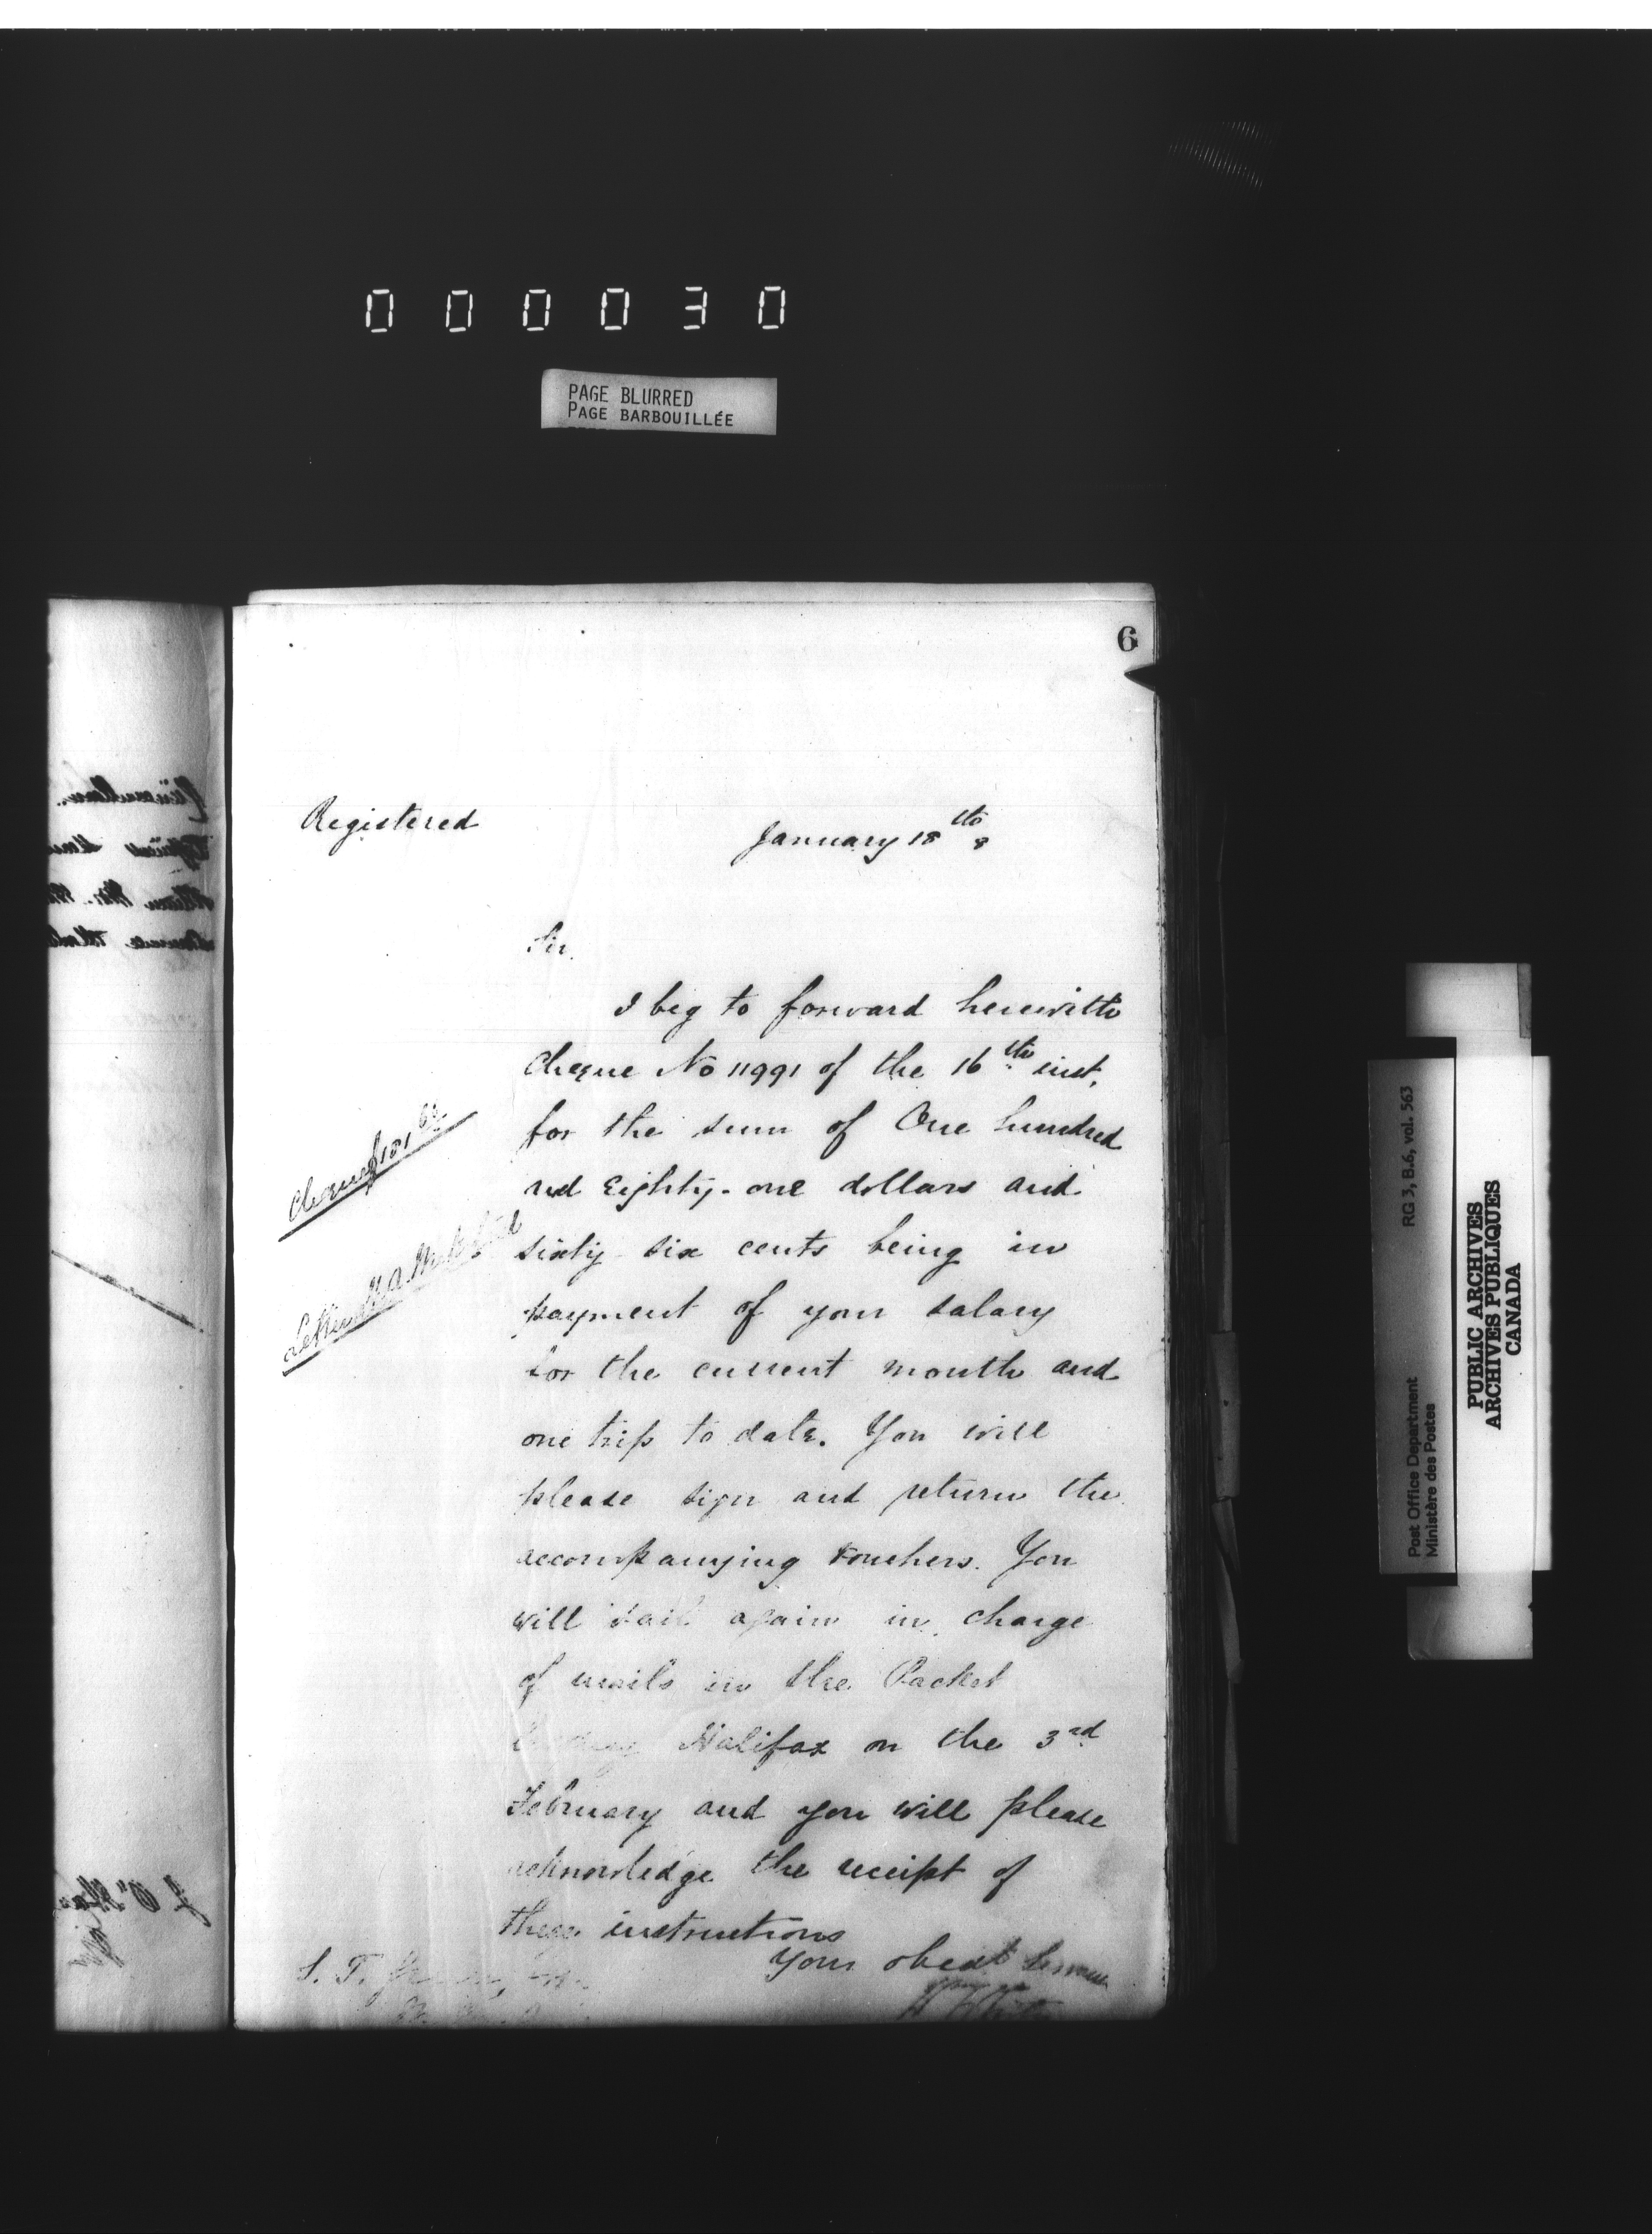 000030
PAGE BLURRED
PAGE BARBOUILLÉE
6
Registered
January 18th 8
Sir,
I beg to forward herewith
Cheque No 11991 of the 16th inst.
for the sum of One hundred
and Eighty-one dollars and
sixty-six cents being in
payment of your salary
for the current month and
one trip to date. You will
please sign and return the
accompanying vouchers. You
will sail again in charge
of mails in the Packet
Halifax on the 3rd
February and you will please
acknowledge the receipt of
these instructions
Your obedt Servant
Cheque $181 66
S. T.
RG 3, B.6, vol. 563
Post Office Department
Ministère des Postes
PUBLIC ARCHIVES
ARCHIVES PUBLIQUES
CANADA